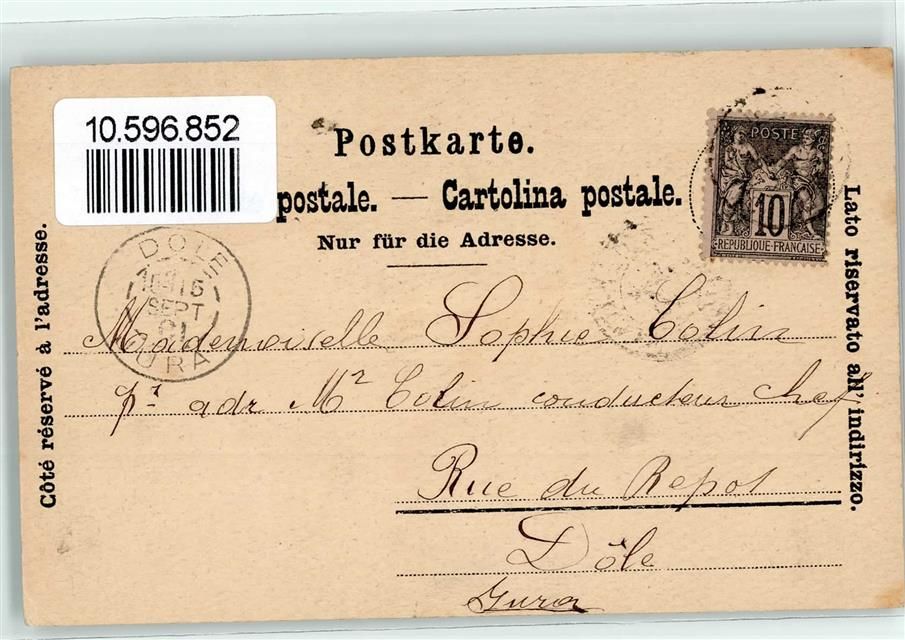 10.596.852
Postkarte.
postale. — Cartolina postale.
Nur für die Adresse.
Côté réservé à l'adresse.
Lato riservato all' indirizzo.
POSTE
10
REPUBLIQUE FRANÇAISE
DOLE
15
SEPT
01
JURA
Mademoiselle Sophie Colin
pr adr Mr Colin conducteur chef
Rue du Repos
Dôle
Jura